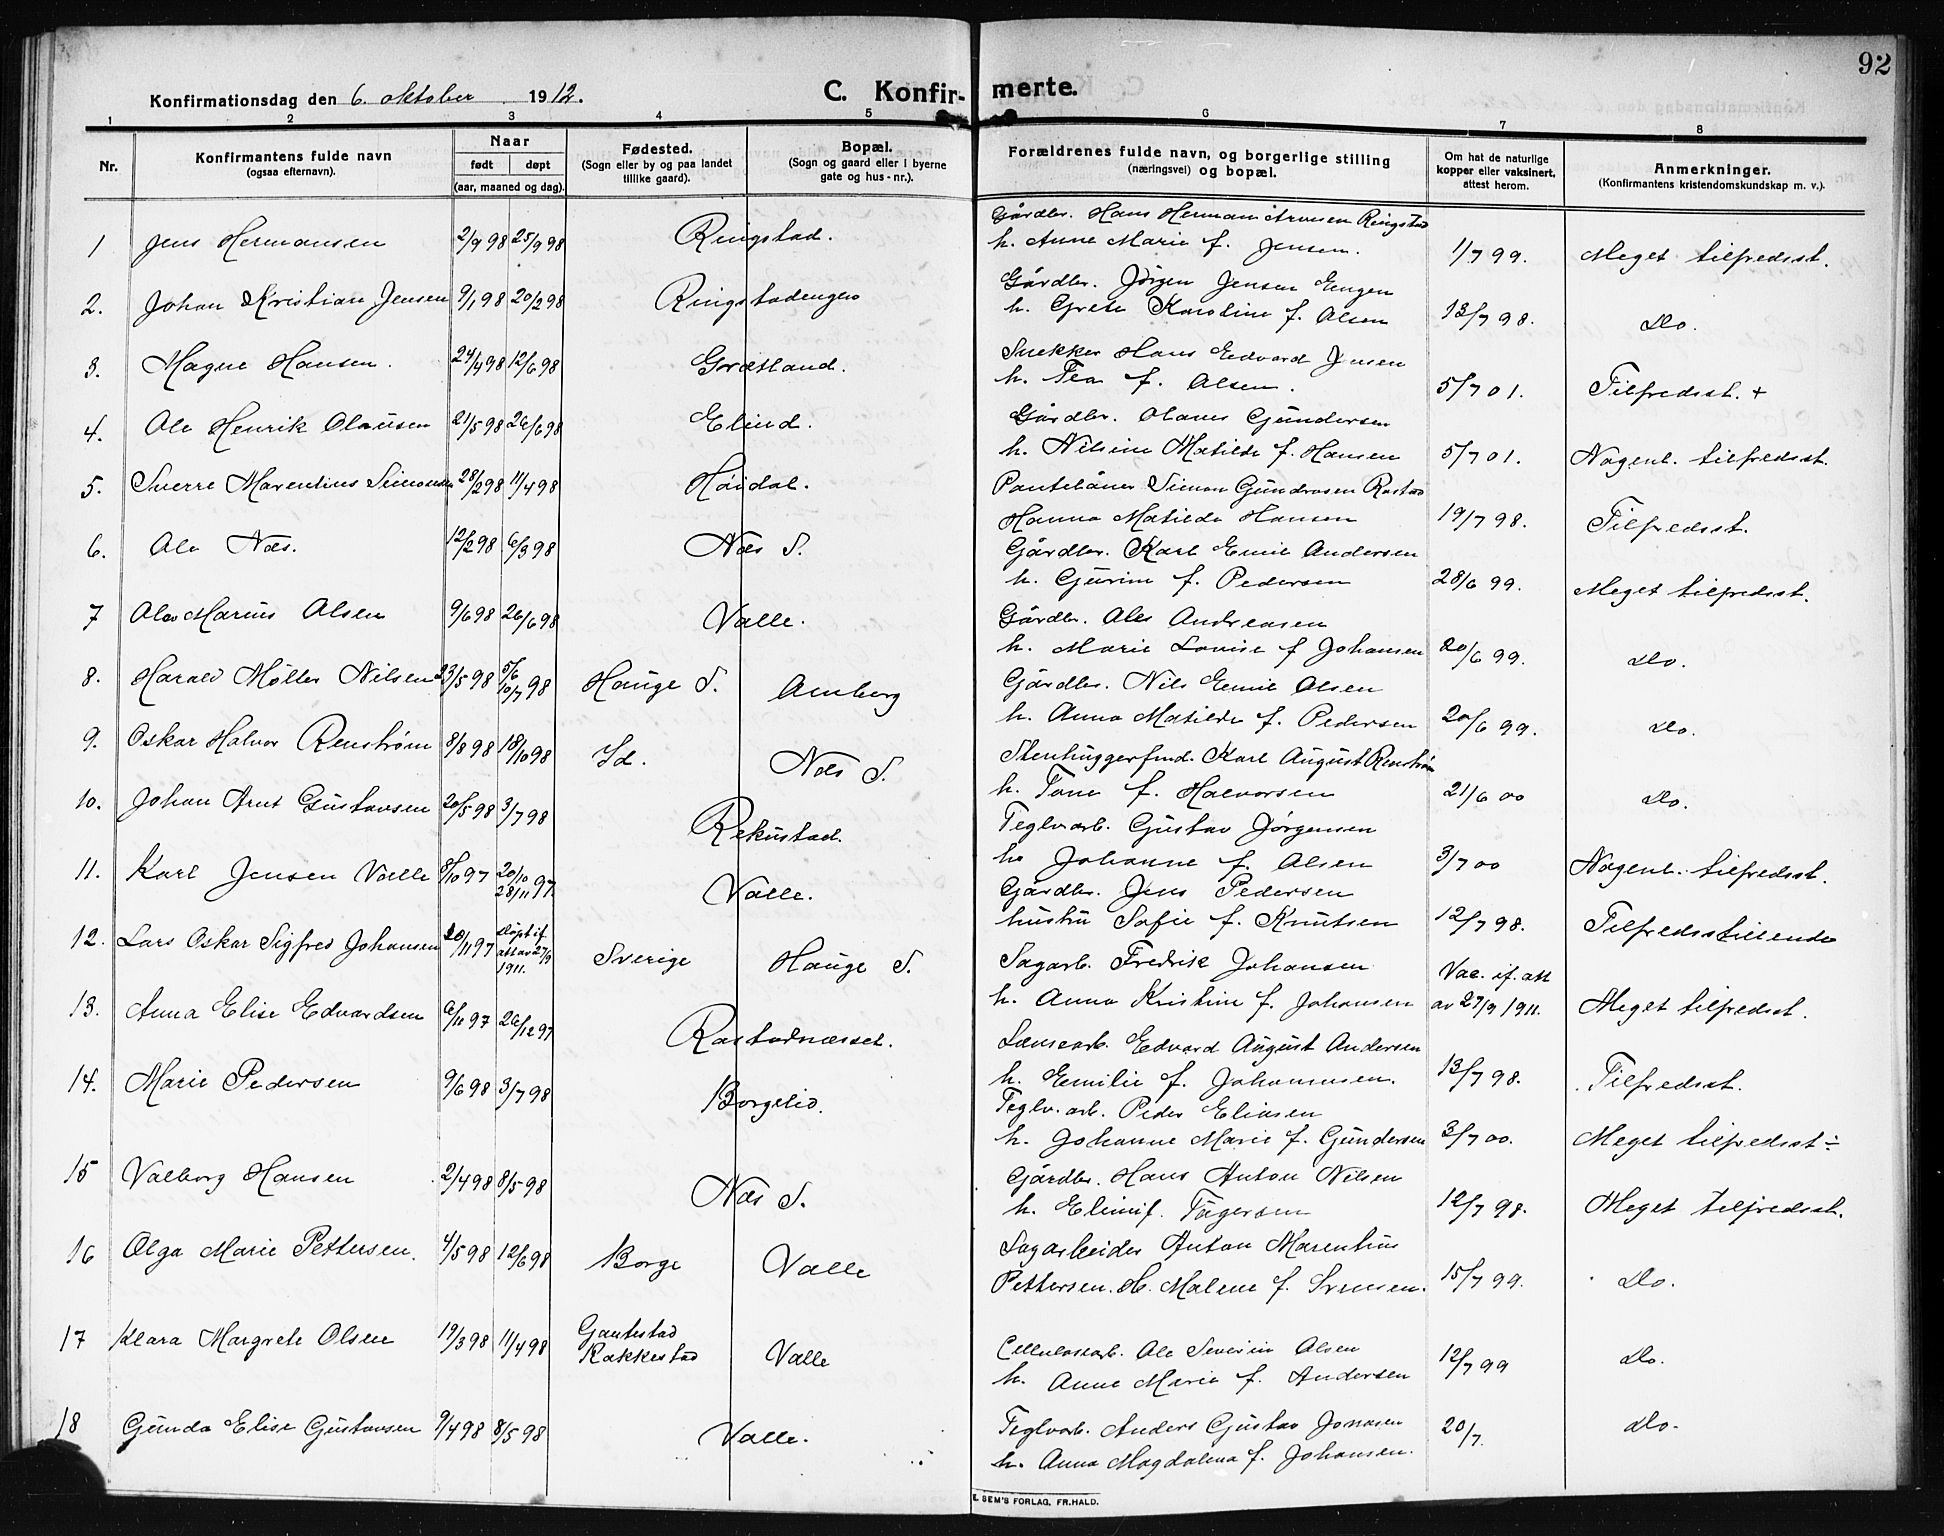 92
Konfirmationsdag den 6. oktober 1912. C. Konfirmerte.
1 2 3 4 5 6 7 8
Nr. Konfirmantens fulde navn (ogsaa efternavn). Naar født døpt (aar, maaned og dag). Fødested. (Sogn eller by og paa landet tillike gaard). Bopæl. (Sogn og gaard eller i byerne gate og hus-nr.). Forældrenes fulde navn, og borgerlige stilling (næringsvei) og bopæl. Om hat de naturlige kopper eller vaksinert, attest herom. Anmerkninger. (Konfirmantens kristendomskundskap m. v.).
1 Jens Hermansen 2/9 98 25/9 98 Ringstad. Gårdbr. Hans Herman Arnesen Ringstad
h. Anne Marie f. Jensen. 1/7 99. Meget tilfredsst.
2. Johan Kristian Jensen 9/1 98 20/2 98 Ringstadengen Gårdbr. Jørgen Jensen Engen
h. Grete Karoline f. Olsen 13/7 98. Do.
3. Magne Hansen. 24/4 98 12/6 98 Grætland. Snekker Hans Edvard Jensen
h. Tea f. Olsen. 5/7 01. Tilfredsst. +
4. Ole Henrik Olausen 21/5 98 26/6 98 Elind. Gårdbr. Olaves Gundersen
h. Nilsine Matilde f. Hansen 5/7 01. Nogenl. tilfredsst.
5. Sverre Marentius Simonsen 28/2 98 11/4 98 Høidal. Panteläner Simon Gundersen Rostad
Hanna Matilde Hansen 19/7 98. Tilfredsst.
6. Ole Næs. 12/2 98 6/3 98 Næs S. Gårdbr. Karl Emil Andersen
h. Gurine f. Pedersen 28/6 99. Meget tilfredsst.
7 Olav Marius Olsen 9/6 98 26/6 98 Valle. Gårdbr. Ole Andreasen
h. Marie Lovise f Johansen 20/6 99. Do.
8. Harald Møller Nilsen 23/5 98 5/6 10/7 98 Hauge S. Amberg Gårdbr. Nils Emil Olsen
h. Anna Matilde f. Pedersen 20/6 99. Do.
9. Oskar Halvor Renstrøm 8/8 98 18/10 98 Id. Næs S. Stenhuggerfmd. Karl August Renstrøm
h. Tone f. Halvorsen 21/6 00 Do.
10. Johan Arnt Gustavsen 20/5 98 3/7 98 Rekustad. Teglv.arb. Gustav Jørgensen
h. Johanne f. Olsen 3/7 00 Nogenl. tilfredsst.
11. Karl Jensen Valle 8/10 97 20/10 28/11 97. Valle. Gårdbr. Jens Pedersen
hustru Sofie f. Knutsen 12/7 98. Tilfredsstillende
12. Lars Oskar Sigfred Johansen 20/11 97 Døpt if. att av 27/9 1911. Sverige Hauge S. Sagarb. Fredrik Johansen
h. Anna Kristine f. Johansen Vac. if. att av 27/9 1911. Meget tilfredsst.
13. Anna Elise Edvardsen 6/11 97 26/12 97 Rostadnæsset. Lænsearb. Edvard August Andersen
h. Emilie f. Johannesen. 13/7 98. Tilfredsst.
14. Marie Pedersen 9/6 98 3/7 98 Borgelid. Teglv.arb. Peder Eliasen
h. Johanne Marie f. Gundersen 3/7 00. Meget tilfredsst ÷
15 Valborg Hansen 2/4 98 8/5 98 Næs S. Gårdbr. Hans Anton Nilsen
h. Elinif. Tagersen 12/7 98. Meget tilfredsst.
16 Olga Marie Pettersen. 4/5 98 12/6 98 Borge Valle Sagarbeider Anton Marentius
Pettersen. H. Malene f. Svensen. 15/7 99. Do.
17 Klara Margrete Olsen 19/3 98 11/4 98 Gautestad Rakkestad Valle Cellulosearb. Ole Severin Olsen
h. Anne Marie f. Andersen 12/7 99 Do.
18 Gunda Elise Gustavsen 9/4 98 8/5 98 Valle. Teglvarb. Anders Gustav Jonasen
h. Anna Magdalena f. Johansen. 20/7. Do.
E. SEM'S FORLAG, FR.HALD.